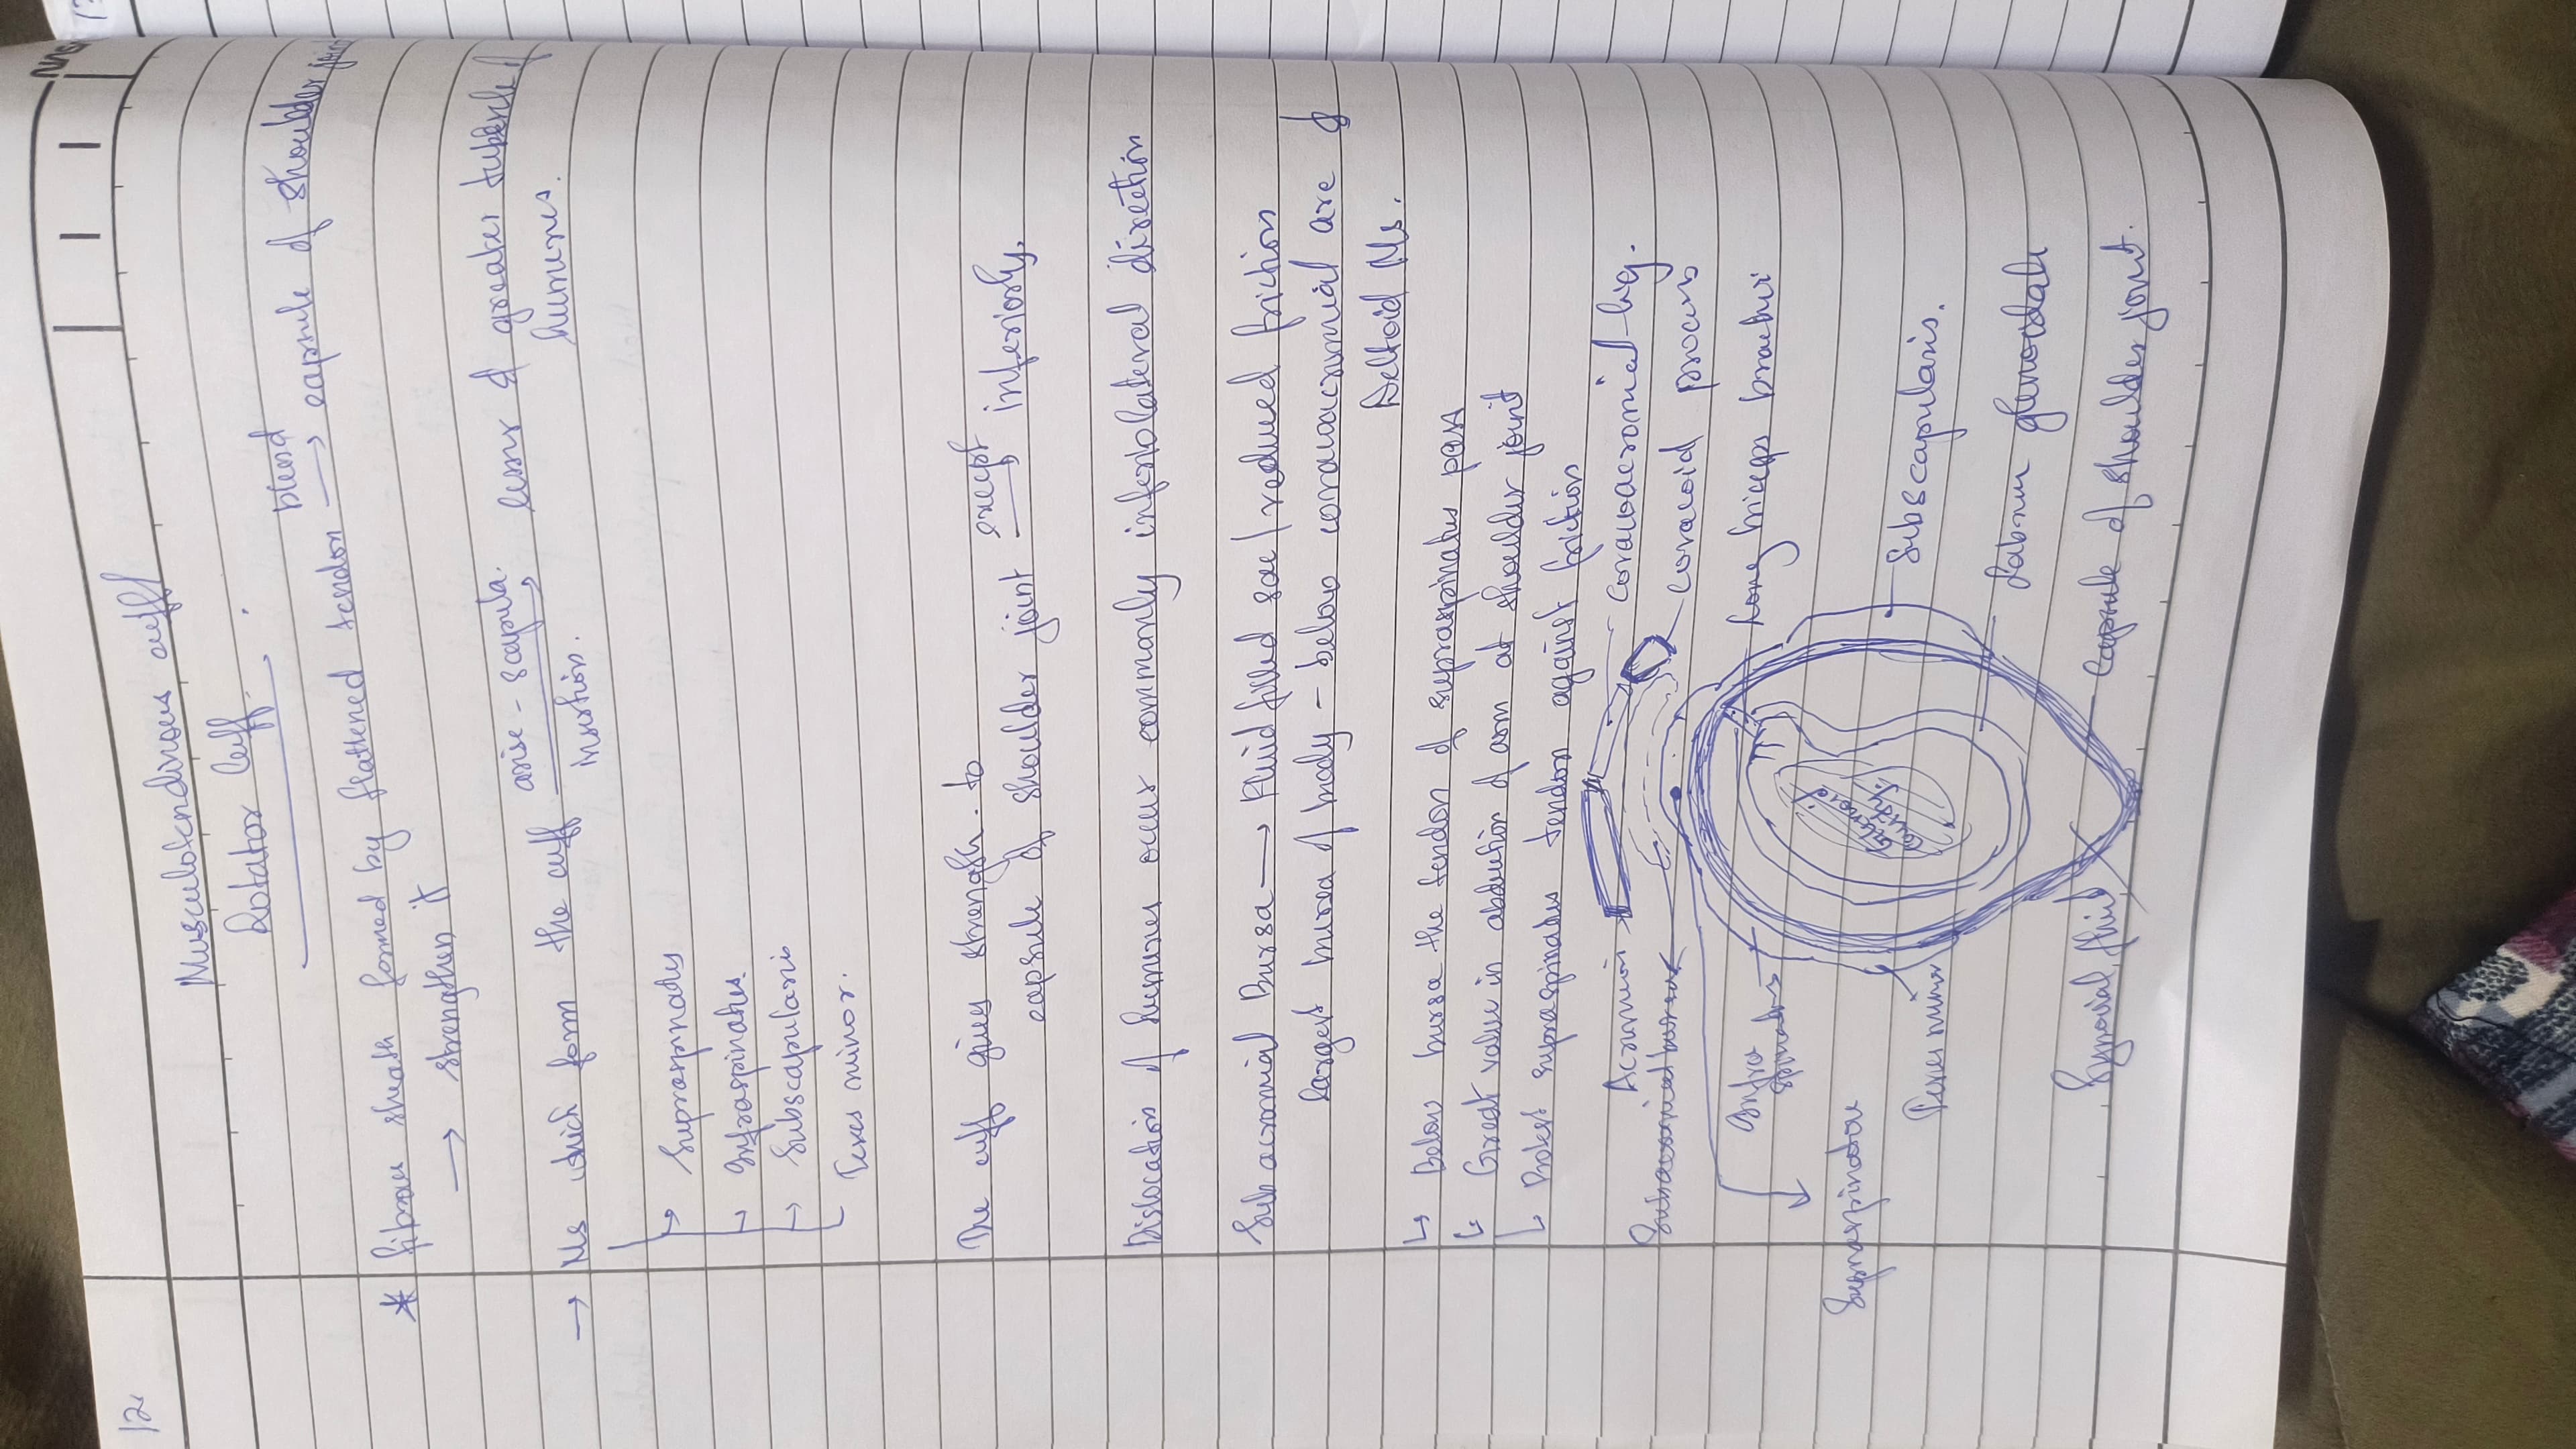 12
Musculotendinous cuff
Rotator Cuff.
* fibrous sheath formed by flattened tendon → blend capsule of shoulder joint
→ strengthen it
→ Ms which form the cuff arise - scapula. lesser & greater tubercle of
insertion. humurus.
Supraspinatus
Infraspinatus.
Subscapularis
Teres minor.
The cuff gives strength to
capsule of shoulder joint except inferiorly.
Dislocation of humerus occur commonly inferolateral direction
Sub acromial Bursa → Fluid filled sac / reduced friction
Largest bursa of body - below coracoacromial arc &
Deltoid Ms.
↳ Below bursa the tendon of supraspinatus pass
↳ Great value in abduction of arm at shoulder joint
↳ Protect supraspinatus tendon against friction
Acromion
coracoacromial lig.
Subacromial bursa
coracoid process
Infra
spinatus
Long biceps brachii
Supraspinatou
Subscapularis.
Teres minor
Glenoid
cavity
Labrum glenoidale
Synovial fluid
Capsule of shoulder joint.